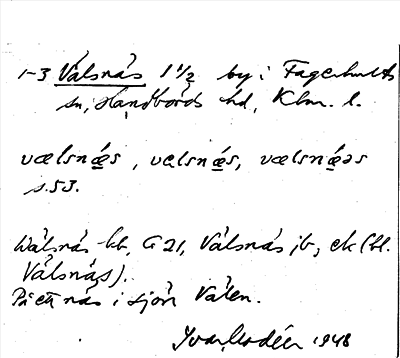 1-3 Válsnäs 1 1/2 by i Fagerhults
sn, Handbörds hd, Klm. l.
vælsnǽs, vælsnǽs, vælsnǽəs
s. 53.
Wálsnäs kb, G 21, Válsnäs jb, ek (bl.
Válsnäs).
På ett näs i sjön Välen.
Ivar Modéer 1948